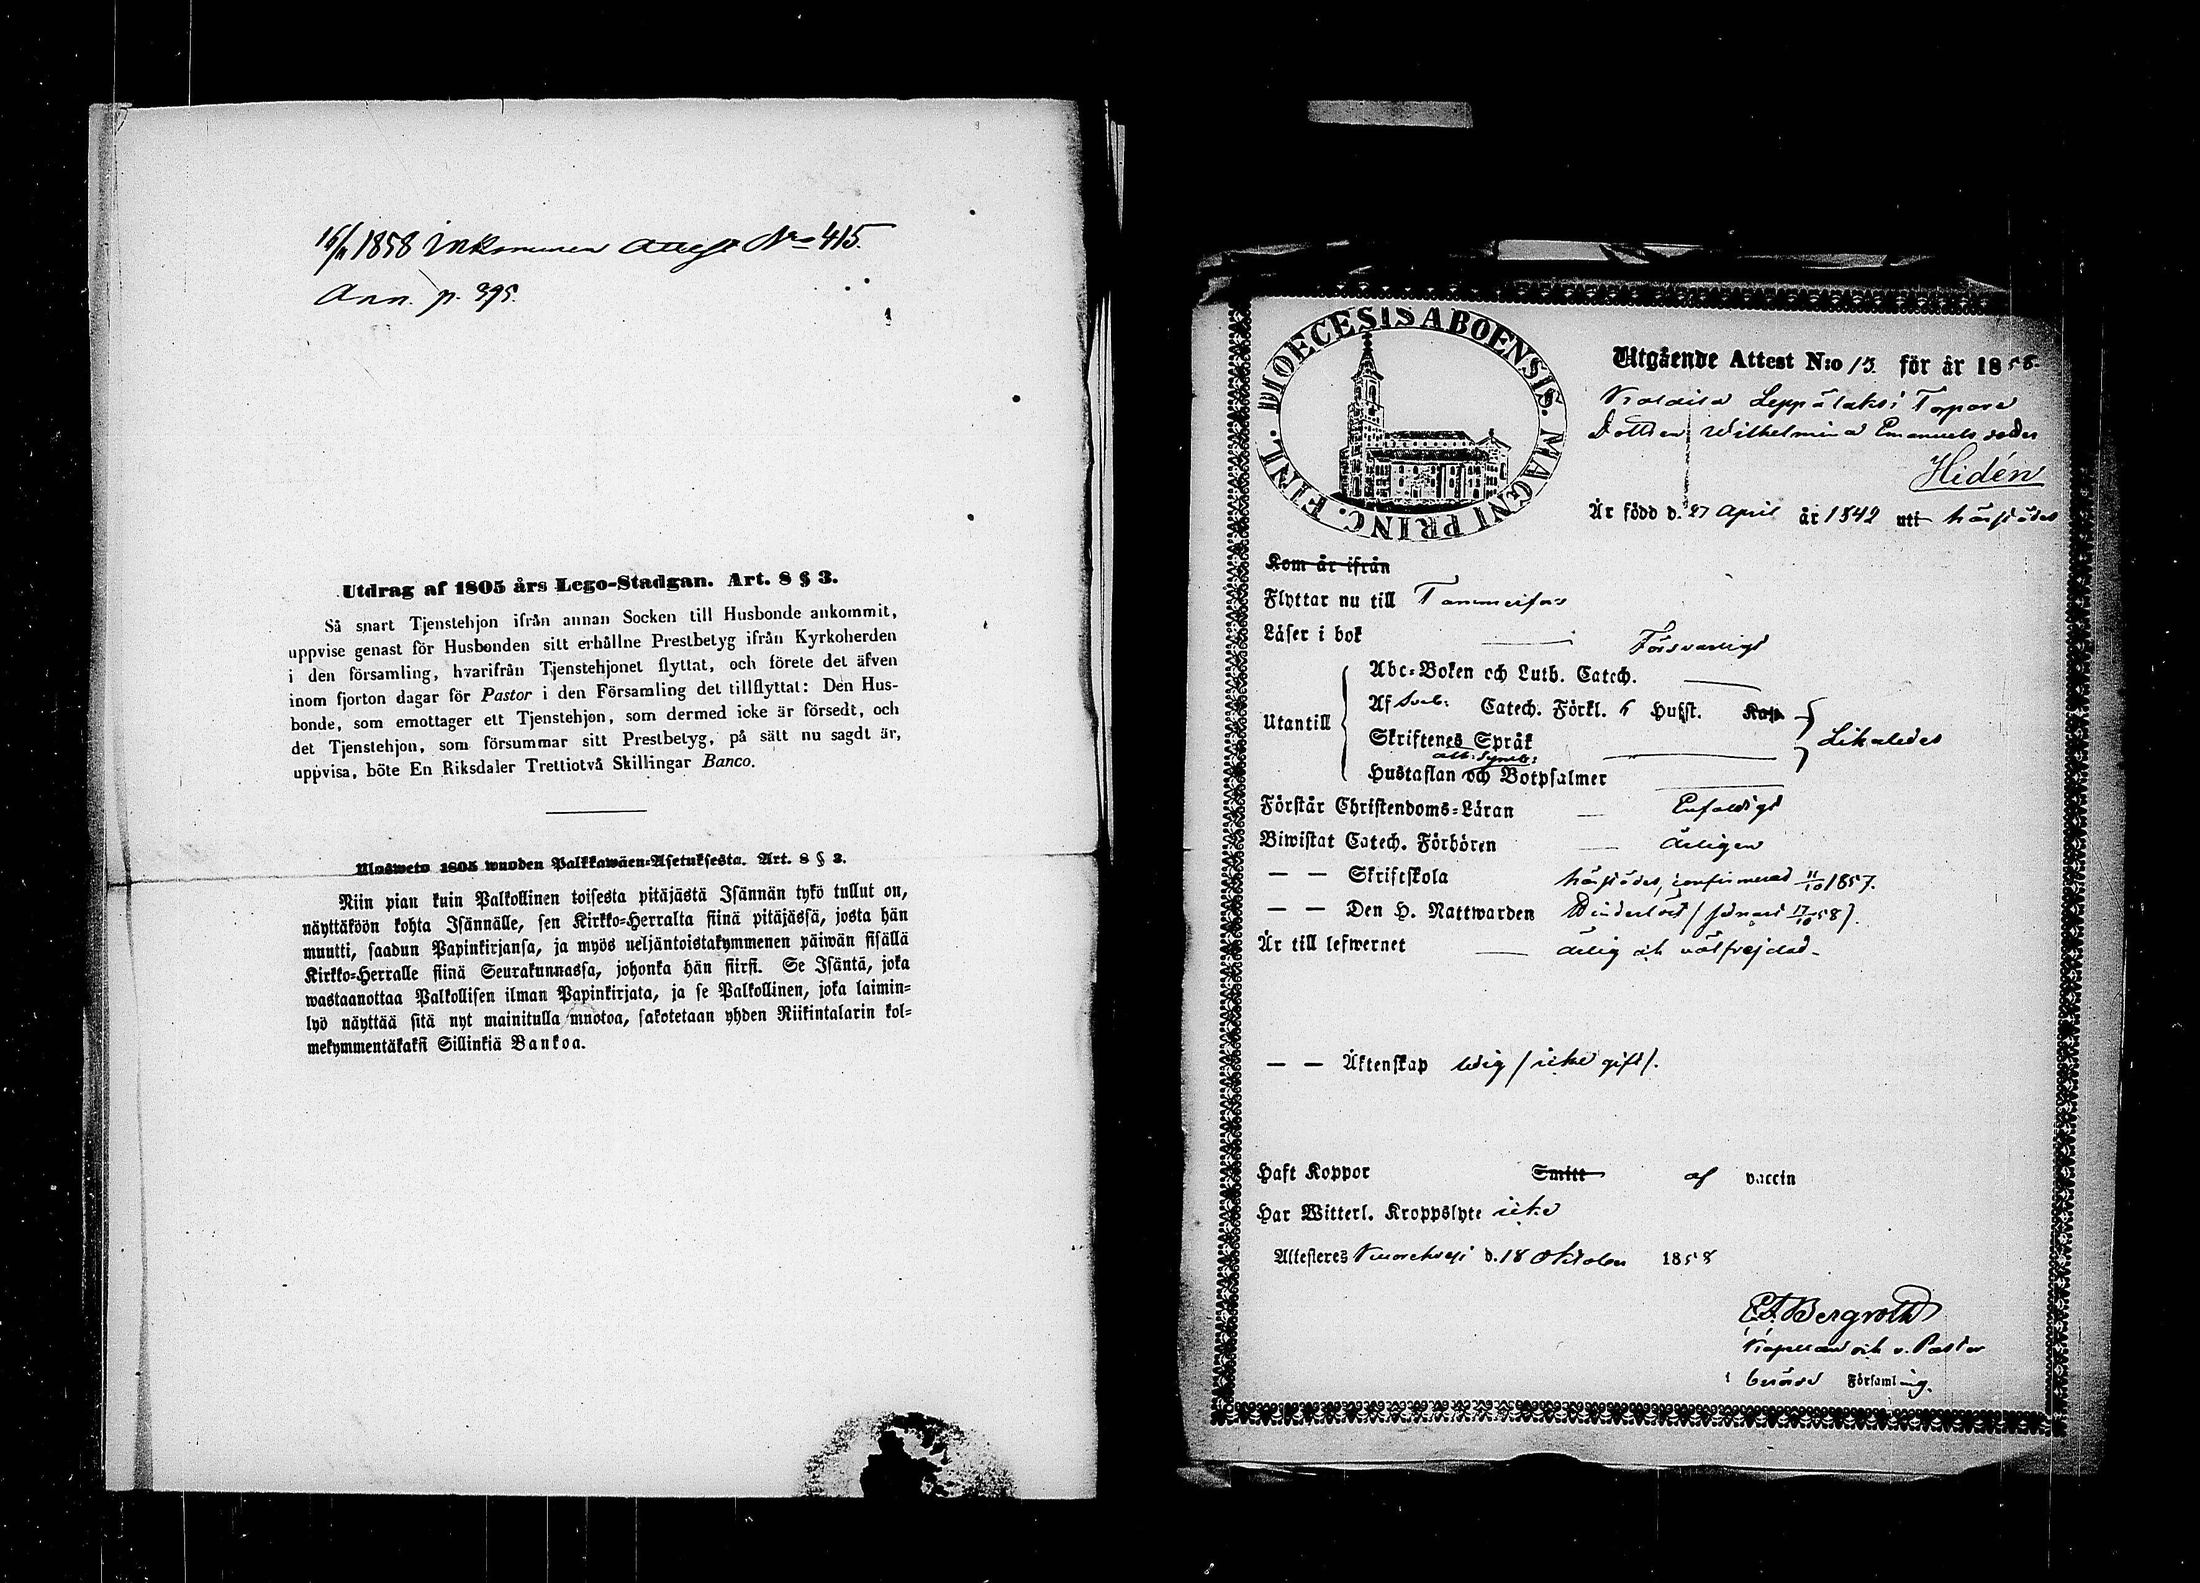 16/11 1858 Inkommen attest No 415.
Ann. p. 395.
Utdrag af 1805 års Lego-Stadgan. Art. 8 § 3.
Så snart Tjenstehjon ifrån annan Socken till Husbonde ankommit,
uppvise genast för Husbonden sitt erhållne Prestbetyg ifrån Kyrkoherden
i den församling, hvarifrån Tjenstehjonet flyttat, och förete det äfven
inom fjorton dagar för Pastor i den Församling det tillflyttat: Den Hus-
bonde, som emottager ett Tjenstehjon, som dermed icke är försedt, och
det Tjenstehjon, som försummar sitt Prestbetyg, på sätt nu sagdt är,
uppvisa, böte En Riksdaler Trettiotvå Skillingar Banco.
Ulosweto 1805 wuoden Palkkawäen-Asetuksesta. Art. 8 § 3.
Niin pian kuin Palkollinen toisesta pitäjästä Isännän tykö tullut on,
näyttäköön kohta Isännälle, sen Kirkko-Herralta siinä pitäjässä, josta hän
muutti, saadun Papinkirjansa, ja myös neljäntoistakymmenen päiwän sisällä
Kirkko-Herralle siinä Seurakunnassa, johonka hän siirsi. Se Isäntä, joka
wastaanottaa Palkollisen ilman Papinkirjata, ja se Palkollinen, joka laimin-
lyö näyttää sitä nyt mainitulla muotoa, sakotetaan yhden Riikintalarin kol-
mekymmentäkaksi Sillinkiä Bankoa.
DIOECESIS ABOENSIS. MAGNI PRINC. FINL.
Utgående Attest N:o 13. för år 1858.
Leppälaksi Torpare
Dottren Wilhelmina Emanuelsdotter
Hidén
Är född d. 27 April år 1842 uti härstädes
Kom år ifrån
Flyttar nu till Tammerfors
Läser i bok — Försvarligt
Abc-Boken och Luth. Catech. —
Utantill Af Sveb: Catech. Förkl. Hufst. Kap.
Skriftenes Språk — Likaledes
Ath: Symb:
Hustaflan och Botpsalmer —
Förstår Christendoms-Läran — Enfaldigt
Biwistat Catech. Förhören — årligen
— — Skriftskola härstädes, confirmerad 11/10 1857.
— — Den H. Nattwarden Oförhindrad / senast 17/10 58/.
Är till lefwernet — ärlig och välfrejdad.
— — Äktenskap ledig / icke gift/.
Haft Koppor Smitt af vaccin
Har Witterl. Kroppslyte icke
Attesteres Kuorehvesi d. 18 Oktober 1858
E.F. Bergroth
Kapellan och v. Pastor
i berörd Församling.